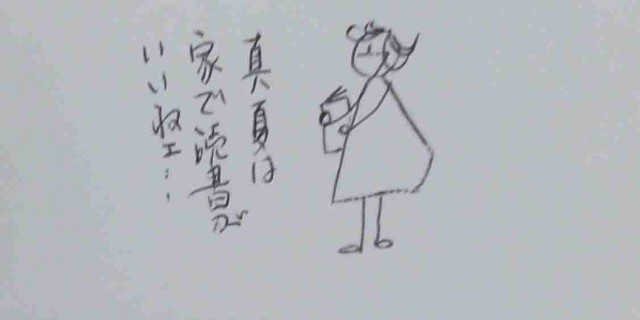 真夏は
家で読書が
いいねェ…